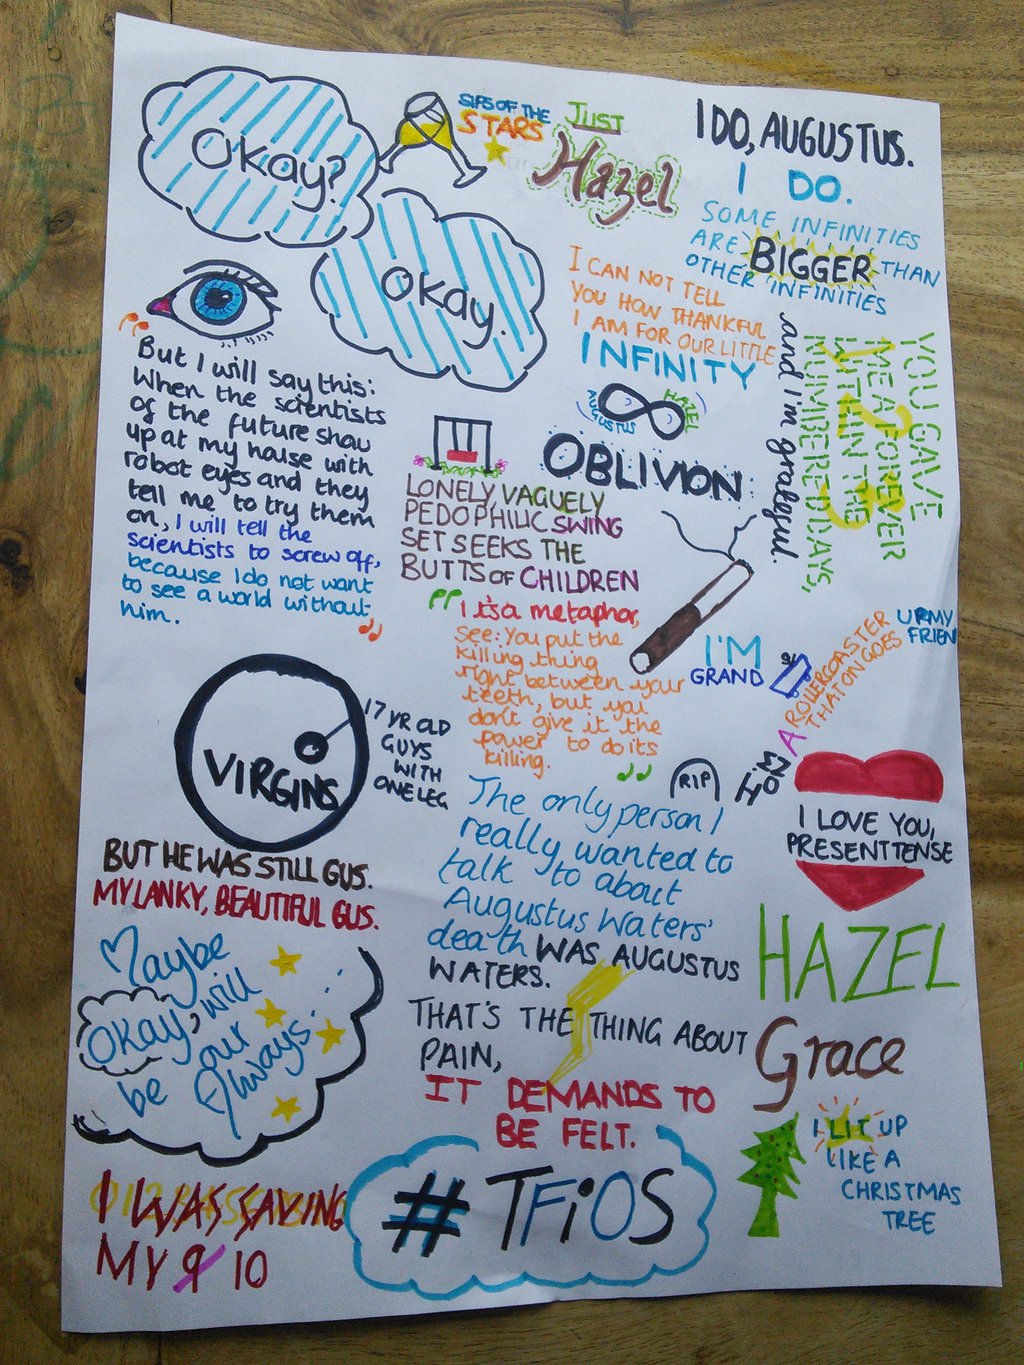 Okay?
SIPS OF THE
STARS
JUST
Hazel
I DO, AUGUSTUS.
I DO.
SOME INFINITIES
ARE BIGGER THAN
OTHER INFINITIES
Okay.
I CAN NOT TELL
YOU HOW THANKFUL
I AM FOR OUR LITTLE
INFINITY
AUGUSTUS
HAZEL
YOU GAVE
ME A FOREVER
WITHIN THE
NUMBERED DAYS,
and I'm grateful.
But I will say this:
When the scientists
of the future show
up at my house with
robot eyes and they
tell me to try them
on, I will tell the
scientists to screw off,
because I do not want
to see a world without
him.
OBLIVION
LONELY, VAGUELY
PEDOPHILIC SWING
SET SEEKS THE
BUTTS OF CHILDREN
It's a metaphor,
see: You put the
killing thing
right between your
teeth, but you
don't give it the
power to do its
killing.
I'M
GRAND
A ROLLERCOASTER
THAT ON GOES
UP, MY
FRIEN
VIRGINS
17 YR OLD
GUYS
WITH
ONE LEG
RIP
I LOVE YOU,
PRESENT TENSE
BUT HE WAS STILL GUS.
MY LANKY, BEAUTIFUL GUS.
The only person I
really wanted to
talk to about
Augustus Waters'
death WAS AUGUSTUS
WATERS.
HAZEL
Grace
Maybe
okay, will
be our
Always.
THAT'S THE THING ABOUT
PAIN,
IT DEMANDS TO
BE FELT.
I LIT UP
LIKE A
CHRISTMAS
TREE
I WAS SAVING
MY 9 10
#TFiOS